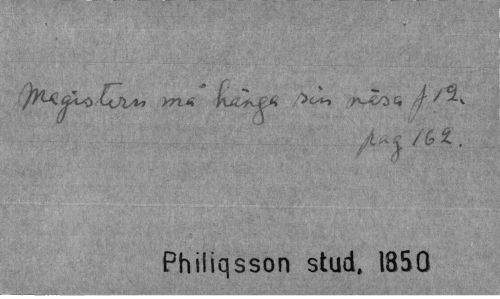 Magistern må hänga sin näsa f 12.
pag 162.
Philiqsson stud, 1850